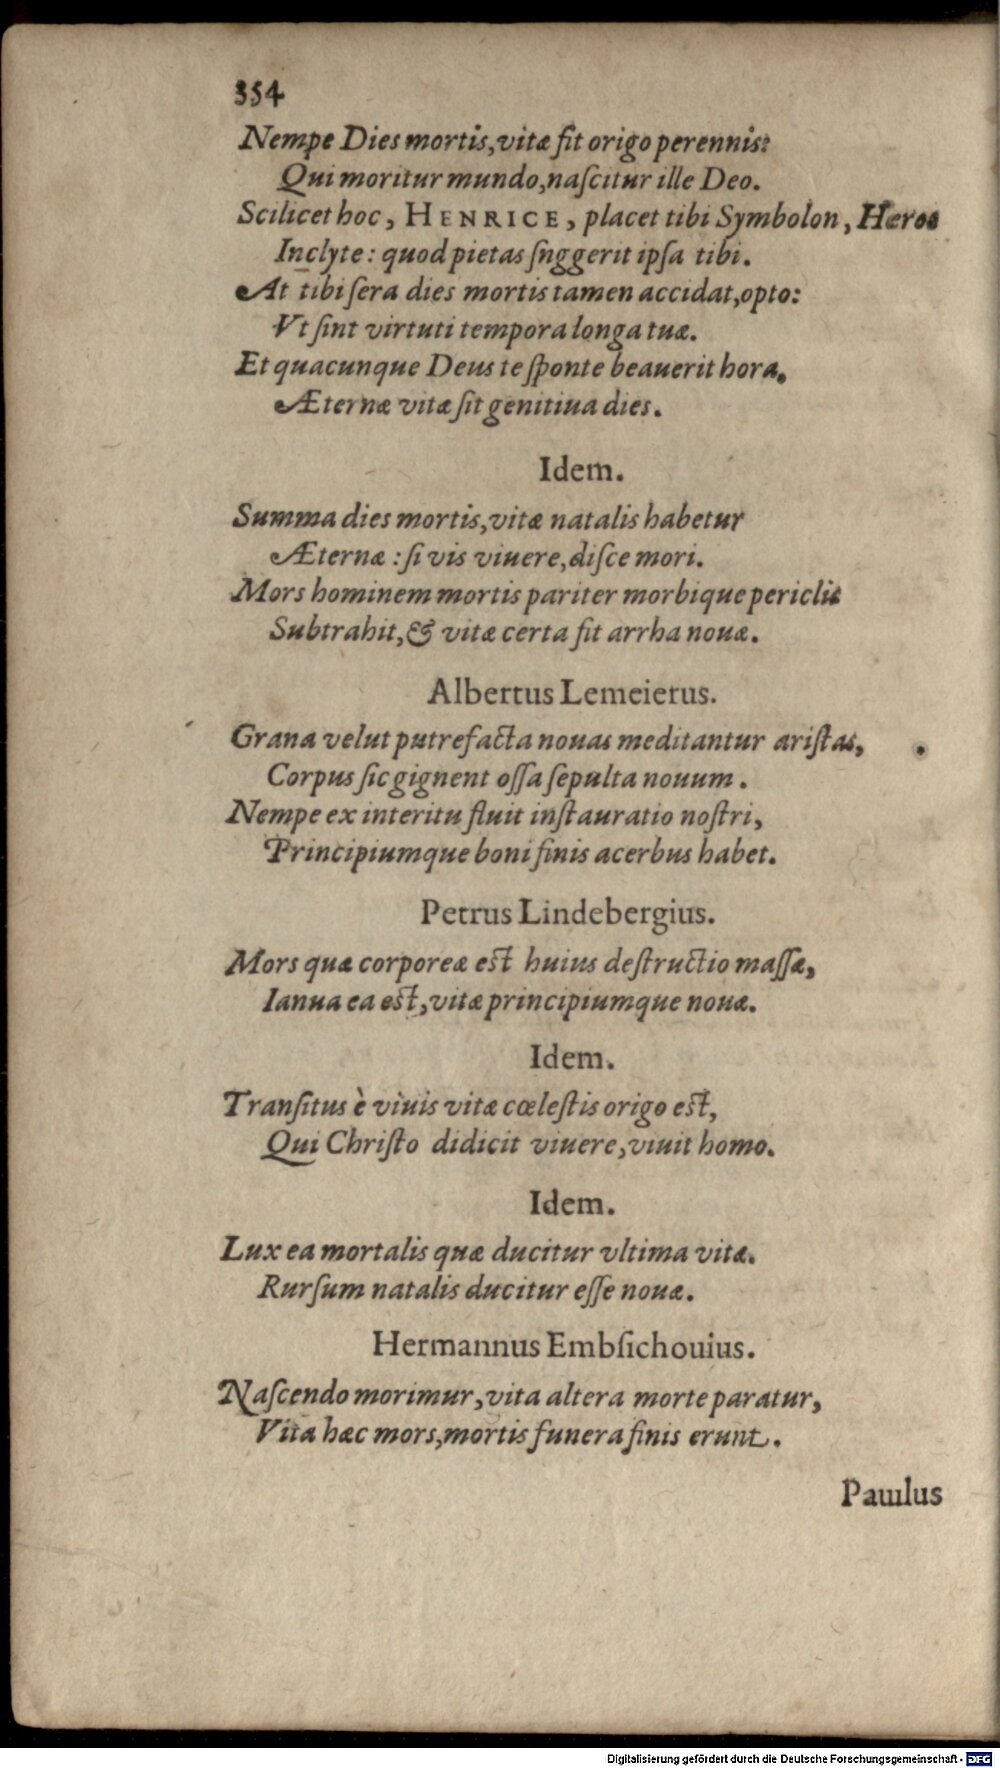 354
Nempe Dies mortis, vitæ fit origo perennis:
Qui moritur mundo, naſcitur ille Deo.
Scilicet hoc, HENRICE, placet tibi Symbolon, Heros
Inclyte: quod pietas ſnggerit ipſa tibi.
At tibi ſera dies mortis tamen accidat, opto:
Vt ſint virtuti tempora longa tuæ.
Et quacunque Deus te ſponte beauerit hora,
Æternæ vitæ ſit genitiua dies.
Idem.
Summa dies mortis, vitæ natalis habetur
Æternæ: ſi vis viuere, diſce mori.
Mors hominem mortis pariter morbique periclis
Subtrahit, & vitæ certa fit arrha nouæ.
Albertus Lemeierus.
Grana velut putrefacta nouas meditantur ariſtas,
Corpus ſic gignent oſſa ſepulta nouum.
Nempe ex interitu fluit inſtauratio noſtri,
Principiumque boni finis acerbus habet.
Petrus Lindebergius.
Mors quæ corporeæ eſt huius deſtructio maſſæ,
Ianua ea eſt, vitæ principiumque nouæ.
Idem.
Tranſitus è viuis vitæ cœleſtis origo eſt,
Qui Chriſto didicit viuere, viuit homo.
Idem.
Lux ea mortalis quæ ducitur vltima vitæ.
Rurſum natalis ducitur eſſe nouæ.
Hermannus Embſichouius.
Naſcendo morimur, vita altera morte paratur,
Vita hæc mors, mortis funera finis erunt.
Paulus
Digitalisierung gefördert durch die Deutsche Forschungsgemeinschaft - DFG